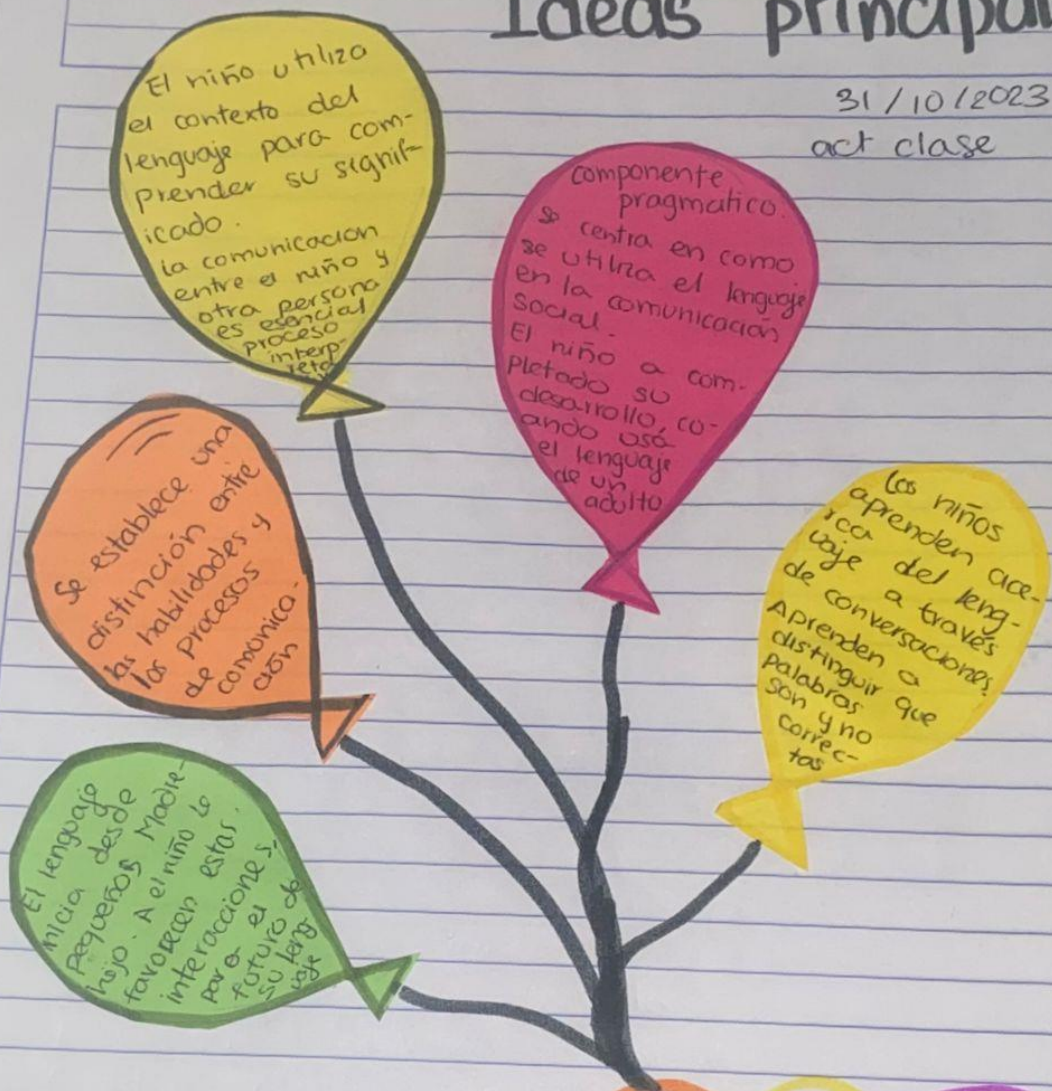 Ideas principal
31/10/2023
act clase
El niño utiliza
el contexto del
lenguaje para com-
prender su signif-
icado.
la comunicacion
entre el niño y
otra persona
es esencial
proceso
interp-
reta
componente
pragmatico.
se centra en como
se utiliza el lenguaje
en la comunicación
social.
El niño a com-
pletado su
desarrollo, cu-
ando usa
el lenguaje
de un
adulto
Se establece una
distinción entre
las habilidades y
los procesos
de
comunica-
ción
los niños
aprenden ace-
rca del leng-
uaje a través
de conversaciones.
Aprenden a
distinguir que
palabras
son y no
correc-
tas
El lenguaje
inicia desde
pequeños Madre-
hijo. A el niño le
favorecen estas
interacciones,
para el
futuro de
su leng-
uaje